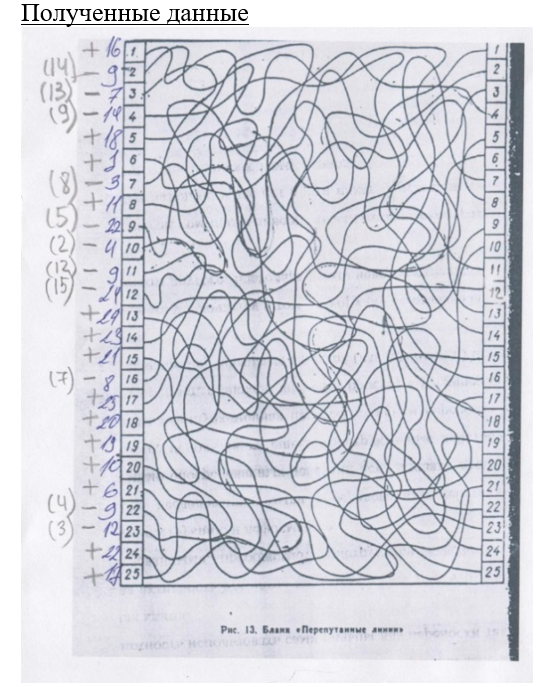 Полученные данные
+ 16 1 1
(14) - 9 2 2
(13) - 7 3 3
(9) - 14 4 4
+ 18 5 5
+ 6 6
(8) - 3 7 7
+ 11 8 8
(5) - 22 9 9
(2) - 4 10 10
(12) - 9 11 11
(15) - 24 12 12
+ 13 13
+ 23 14 14
+ 21 15 15
(7) - 8 16 16
+ 25 17 17
+ 20 18 18
+ 19 19 19
+ 10 20 20
+ 6 21 21
(4) - 9 22 22
(3) - 12 23 23
+ 22 24 24
+ 25 25
Рис. 13. Бланк «Перепутанные линии»